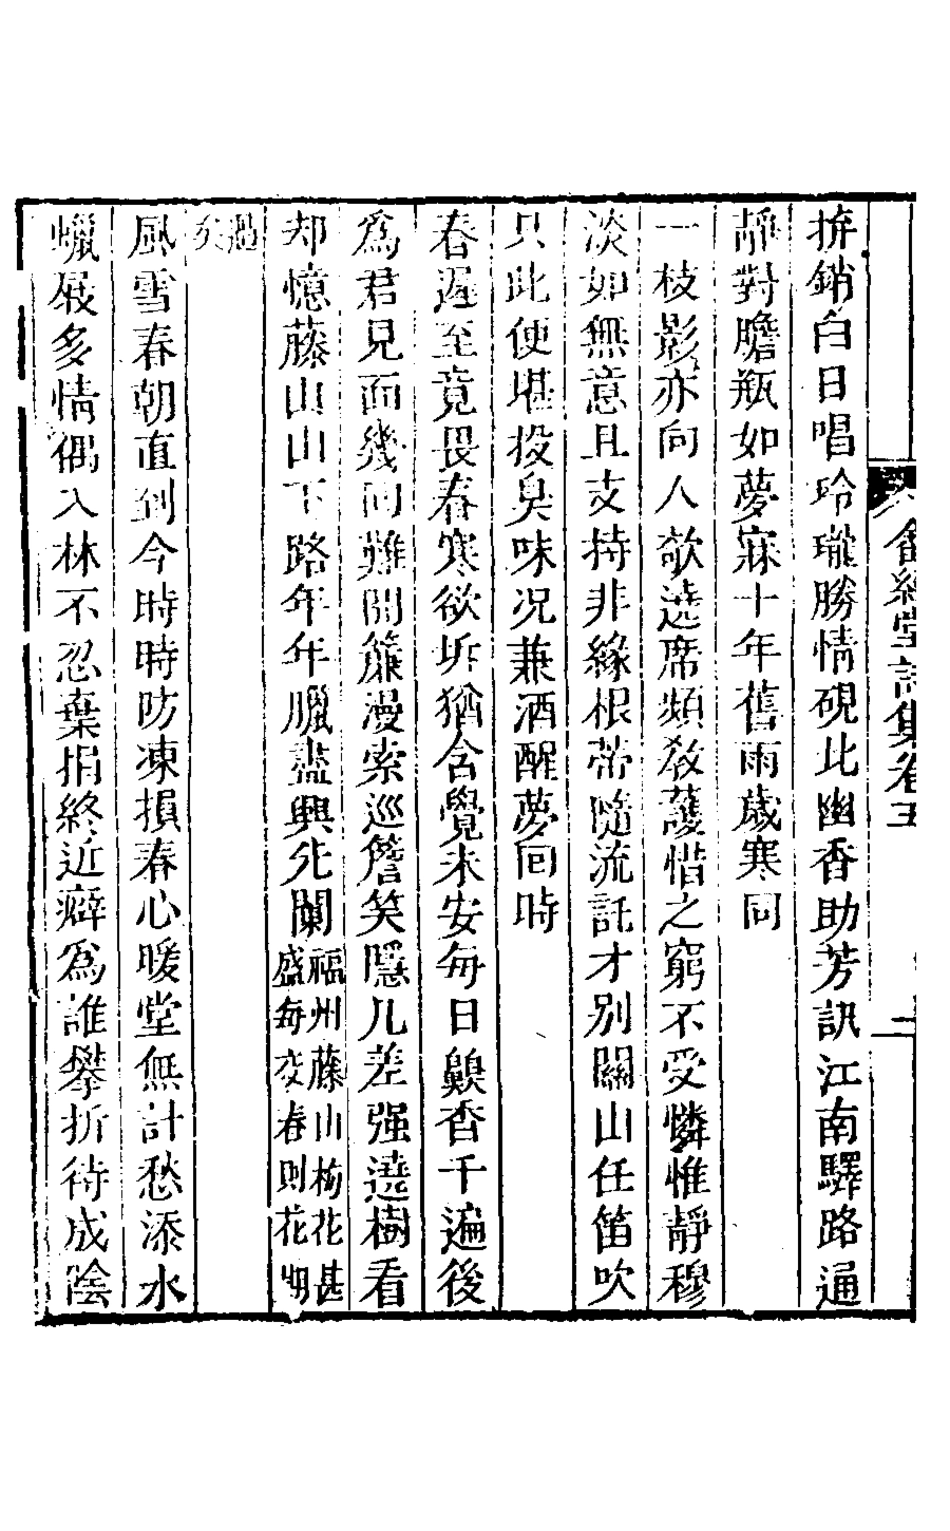 拚銷白日唱玲瓏勝情硯此幽香助芳訊江南驛路通
靜對膽瓶如夢寐十年舊雨歲寒同
一枝影亦向人欹遶席頻教護惜之窮不受憐惟靜穆
淡如無意且支持非緣根蒂隨流託才別關山任笛吹
只此便堪投臭味况兼酒醒夢回時
春遲至竟畏春寒欲坼猶含覺未安每日齅香千遍後
爲君見面幾回難開簾漫索巡簷笑隱几差强遶樹看
却憶藤山山下路年年臘盡興先闌福州藤山梅花甚
盛每交春則花期
過
矣
風雪春朝直到今時時防凍損春心暖堂無計愁添水
蠟屐多情偶入林不忍棄捐終近癖爲誰攀折待成陰
經堂詩集卷五